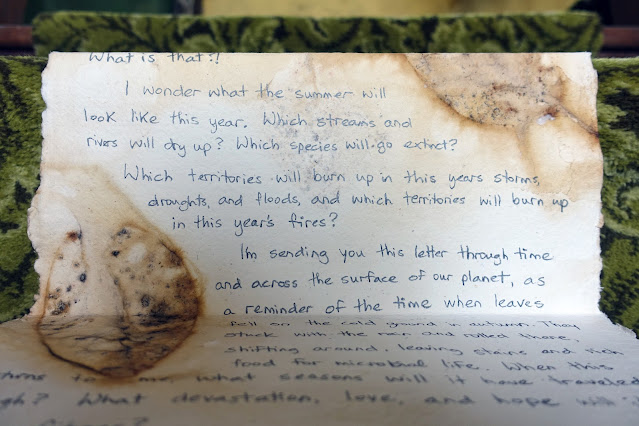 What is that?!
I wonder what the summer will
look like this year. Which streams and
rivers will dry up? Which species will go extinct?
Which territories will burn up in this years storms,
droughts, and floods, and which territories will burn up
in this year's fires?
I'm sending you this letter through time
and across the surface of our planet, as
a reminder of the time when leaves
fell on the cold ground in autumn. They
stuck with the rain and rotted there,
shifting around, leaving stains and rich
food for microbial life. When this
to me, what seasons will it have traveled
What devastation, love, and hope will